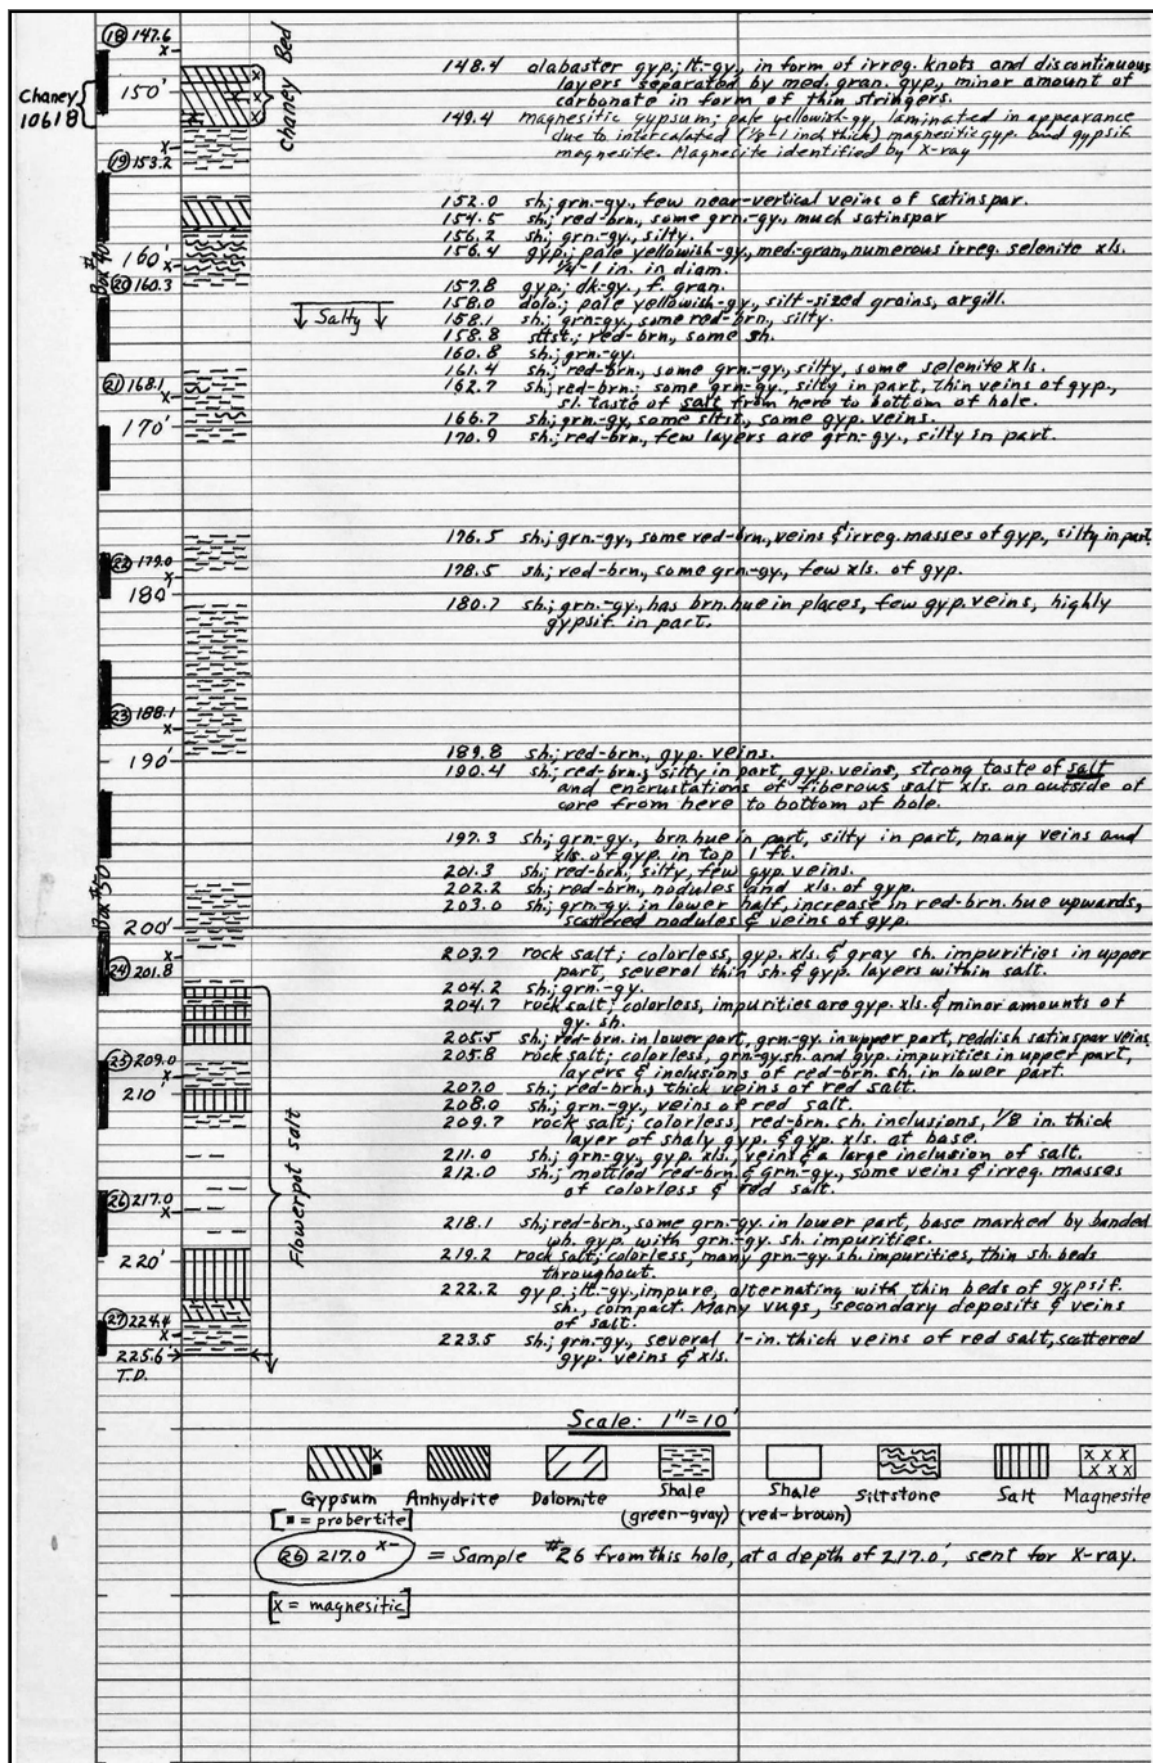 ⑱ 147.6
x
Chaney Bed
Chaney
10618
150'
x
⑲ 153.2
Box #40
160'
x
⑳ 160.3
↓ Salty ↓
㉑ 168.1
x
170'
㉒ 179.0
x
180'
㉓ 188.1
x
190'
Box #50
200'
x
㉔ 201.8
㉕ 209.0
x
210'
㉖ 217.0
x
220'
㉗ 224.4
x
225.6
T.D.
Flowerpot salt
148.4 alabaster gyp.; lt.-gy., in form of irreg. knots and discontinuous
layers separated by med. gran. gyp., minor amount of
carbonate in form of thin stringers.
149.4 magnesitic gypsum; pale yellowish-gy., laminated in appearance
due to intercalated (1/8-1 inch thick) magnesitic gyp. and gypsif.
magnesite. Magnesite identified by X-ray
152.0 sh.; grn.-gy., few near-vertical veins of satinspar.
154.5 sh.; red-brn., some grn.-gy., much satinspar
156.2 sh.; grn.-gy., silty.
156.4 gyp.; pale yellowish-gy., med.-gran., numerous irreg. selenite xls.
1/4-1 in. in diam.
157.8 gyp.; dk.-gy., f. gran.
158.0 dolo.; pale yellowish-gy., silt-sized grains, argill.
158.1 sh.; grn.-gy., some red-brn., silty.
158.8 sltst.; red-brn., some sh.
160.8 sh.; grn.-gy.
161.4 sh.; red-brn., some grn.-gy., silty, some selenite xls.
162.7 sh.; red-brn.; some grn.-gy., silty in part, thin veins of gyp.,
sl. taste of salt from here to bottom of hole.
166.7 sh.; grn.-gy., some sltst., some gyp. veins.
170.9 sh.; red-brn., few layers are grn.-gy., silty in part.
176.5 sh.; grn.-gy., some red-brn., veins & irreg. masses of gyp., silty in part.
178.5 sh.; red-brn., some grn.-gy., few xls. of gyp.
180.7 sh.; grn.-gy., has brn. hue in places, few gyp. veins, highly
gypsif. in part.
189.8 sh.; red-brn., gyp. veins.
190.4 sh.; red-brn.; silty in part, gyp. veins, strong taste of salt
and encrustations of fiberous salt xls. on outside of
core from here to bottom of hole.
197.3 sh.; grn.-gy., brn. hue in part, silty in part, many veins and
xls. of gyp. in top 1 ft.
201.3 sh.; red-brn., silty, few gyp. veins.
202.2 sh.; red-brn., nodules and xls. of gyp.
203.0 sh.; grn.-gy. in lower half, increase in red-brn. hue upwards,
scattered nodules & veins of gyp.
203.7 rock salt; colorless, gyp. xls. & gray sh. impurities in upper
part, several thin sh. & gyp. layers within salt.
204.2 sh.; grn.-gy.
204.7 rock salt; colorless, impurities are gyp. xls. & minor amounts of
gy. sh.
205.5 sh.; red-brn. in lower part, grn.-gy. in upper part, reddish satinspar veins
205.8 rock salt; colorless, grn.-gy. sh. and gyp. impurities in upper part,
layers & inclusions of red-brn. sh. in lower part.
207.0 sh.; red-brn., thick veins of red salt.
208.0 sh.; grn.-gy., veins of red salt.
209.7 rock salt; colorless, red-brn. sh. inclusions, 1/8 in. thick
layer of shaly gyp. & gyp. xls. at base.
211.0 sh.; grn.-gy., gyp. xls., veins & a large inclusion of salt.
212.0 sh.; mottled red-brn. & grn.-gy., some veins & irreg. masses
of colorless & red salt.
218.1 sh.; red-brn., some grn.-gy. in lower part, base marked by banded
wh. gyp. with grn.-gy. sh. impurities.
219.2 rock salt; colorless, many grn.-gy. sh. impurities, thin sh. beds
throughout.
222.2 gyp.; lt.-gy., impure, alternating with thin beds of gypsif.
sh., compact. Many vugs, secondary deposits & veins
of salt.
223.5 sh.; grn.-gy., several 1-in. thick veins of red salt, scattered
gyp. veins & xls.
Scale: 1"=10'
Gypsum Anhydrite Dolomite Shale Shale Siltstone Salt Magnesite
[▪ = probertite] (green-gray) (red-brown)
㉖ 217.0 x- = Sample #26 from this hole, at a depth of 217.0', sent for X-ray.
[x = magnesitic]